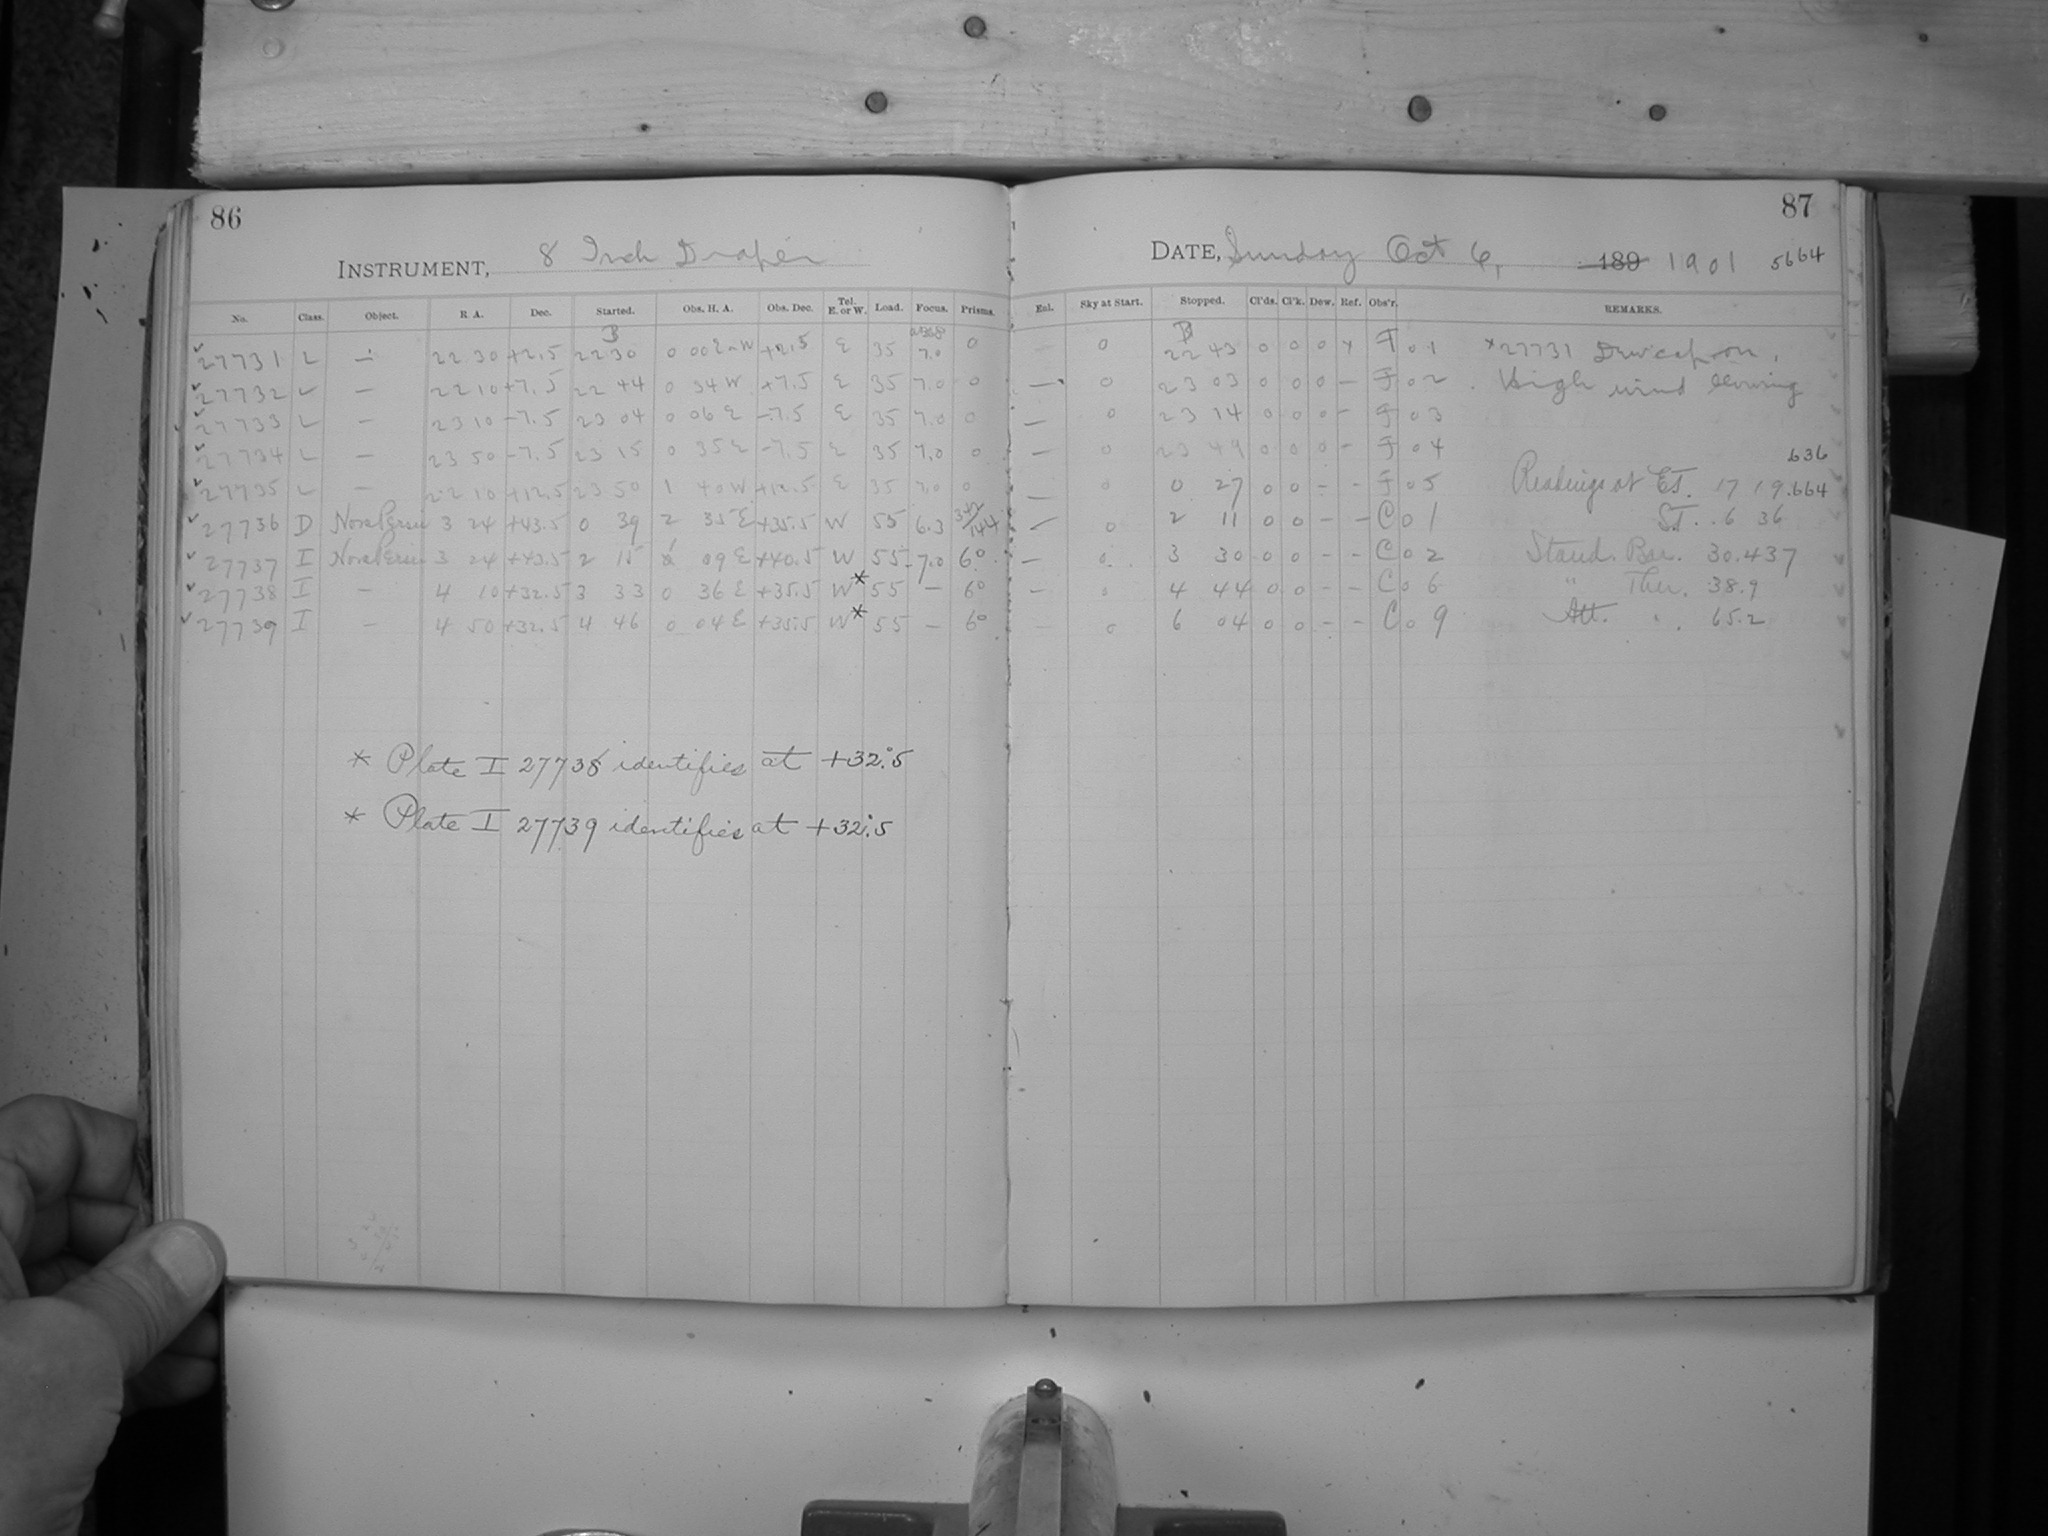 86
INSTRUMENT, 8 Inch Draper
No. Class. Object. R. A. Dec. Started. Obs. H. A. Obs. Dec. Tel. E. or W. Load. Focus. Prisms.
B
27731 L — 22 30 +2.5 22 30 0 00 E-W +2.5 E 35 7.0 0
27732 L — 22 10 +7.5 22 44 0 34 W +7.5 E 35 7.0 0
27733 L — 23 10 -7.5 23 04 0 06 E -7.5 E 35 7.0 0
27734 L — 23 50 -7.5 23 15 0 35 E -7.5 E 35 7.0 0
27735 L — 22 10 +12.5 23 50 1 40 W +12.5 E 35 7.0 0
27736 D Nova Persei 3 24 +43.5 0 39 2 35 E +35.5 W 55 6.3
27737 I Nova Persei 3 24 +43.5 2 15 09 E +40.5 W 55 7.0 6°
27738 I — 4 10 +32.5 3 33 0 36 E +35.5 W* 55 — 6°
27739 I — 4 50 +32.5 4 46 0 04 E +35.5 W* 55 — 6°
* Plate I 27738 identifies at +32°.5
* Plate I 27739 identifies at +32°.5
87
DATE, Sunday Oct 6, 189 1901 5664
Enl. Sky at Start. Stopped. Cl'ds. Cl'k. Dew. Ref. Obs'r. REMARKS.
B
0 22 43 0 0 0 x F 01 x27731 Dewcap on.
— 0 23 03 0 0 0 — F 02 High wind blowing
— 0 23 14 0 0 0 — F 03
— 0 23 49 0 0 0 — F 04
636
— 0 0 27 0 0 — — F 05 Readings at E.T. 17 19.664
— 0 2 11 0 0 — — C 01 S.T. 6 36
— 0 3 30 0 0 — — C 02 Stand. Bar. 30.437
— 0 4 44 0 0 — — C 06 " Ther. 38.9
— 0 6 04 0 0 — — C 09 Att. " 65.2